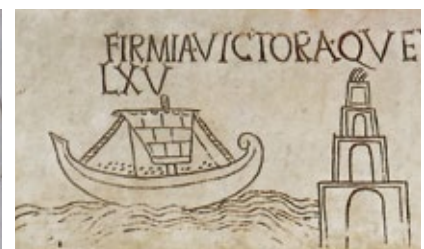 FIRMIA VICTORA QVE
LXV